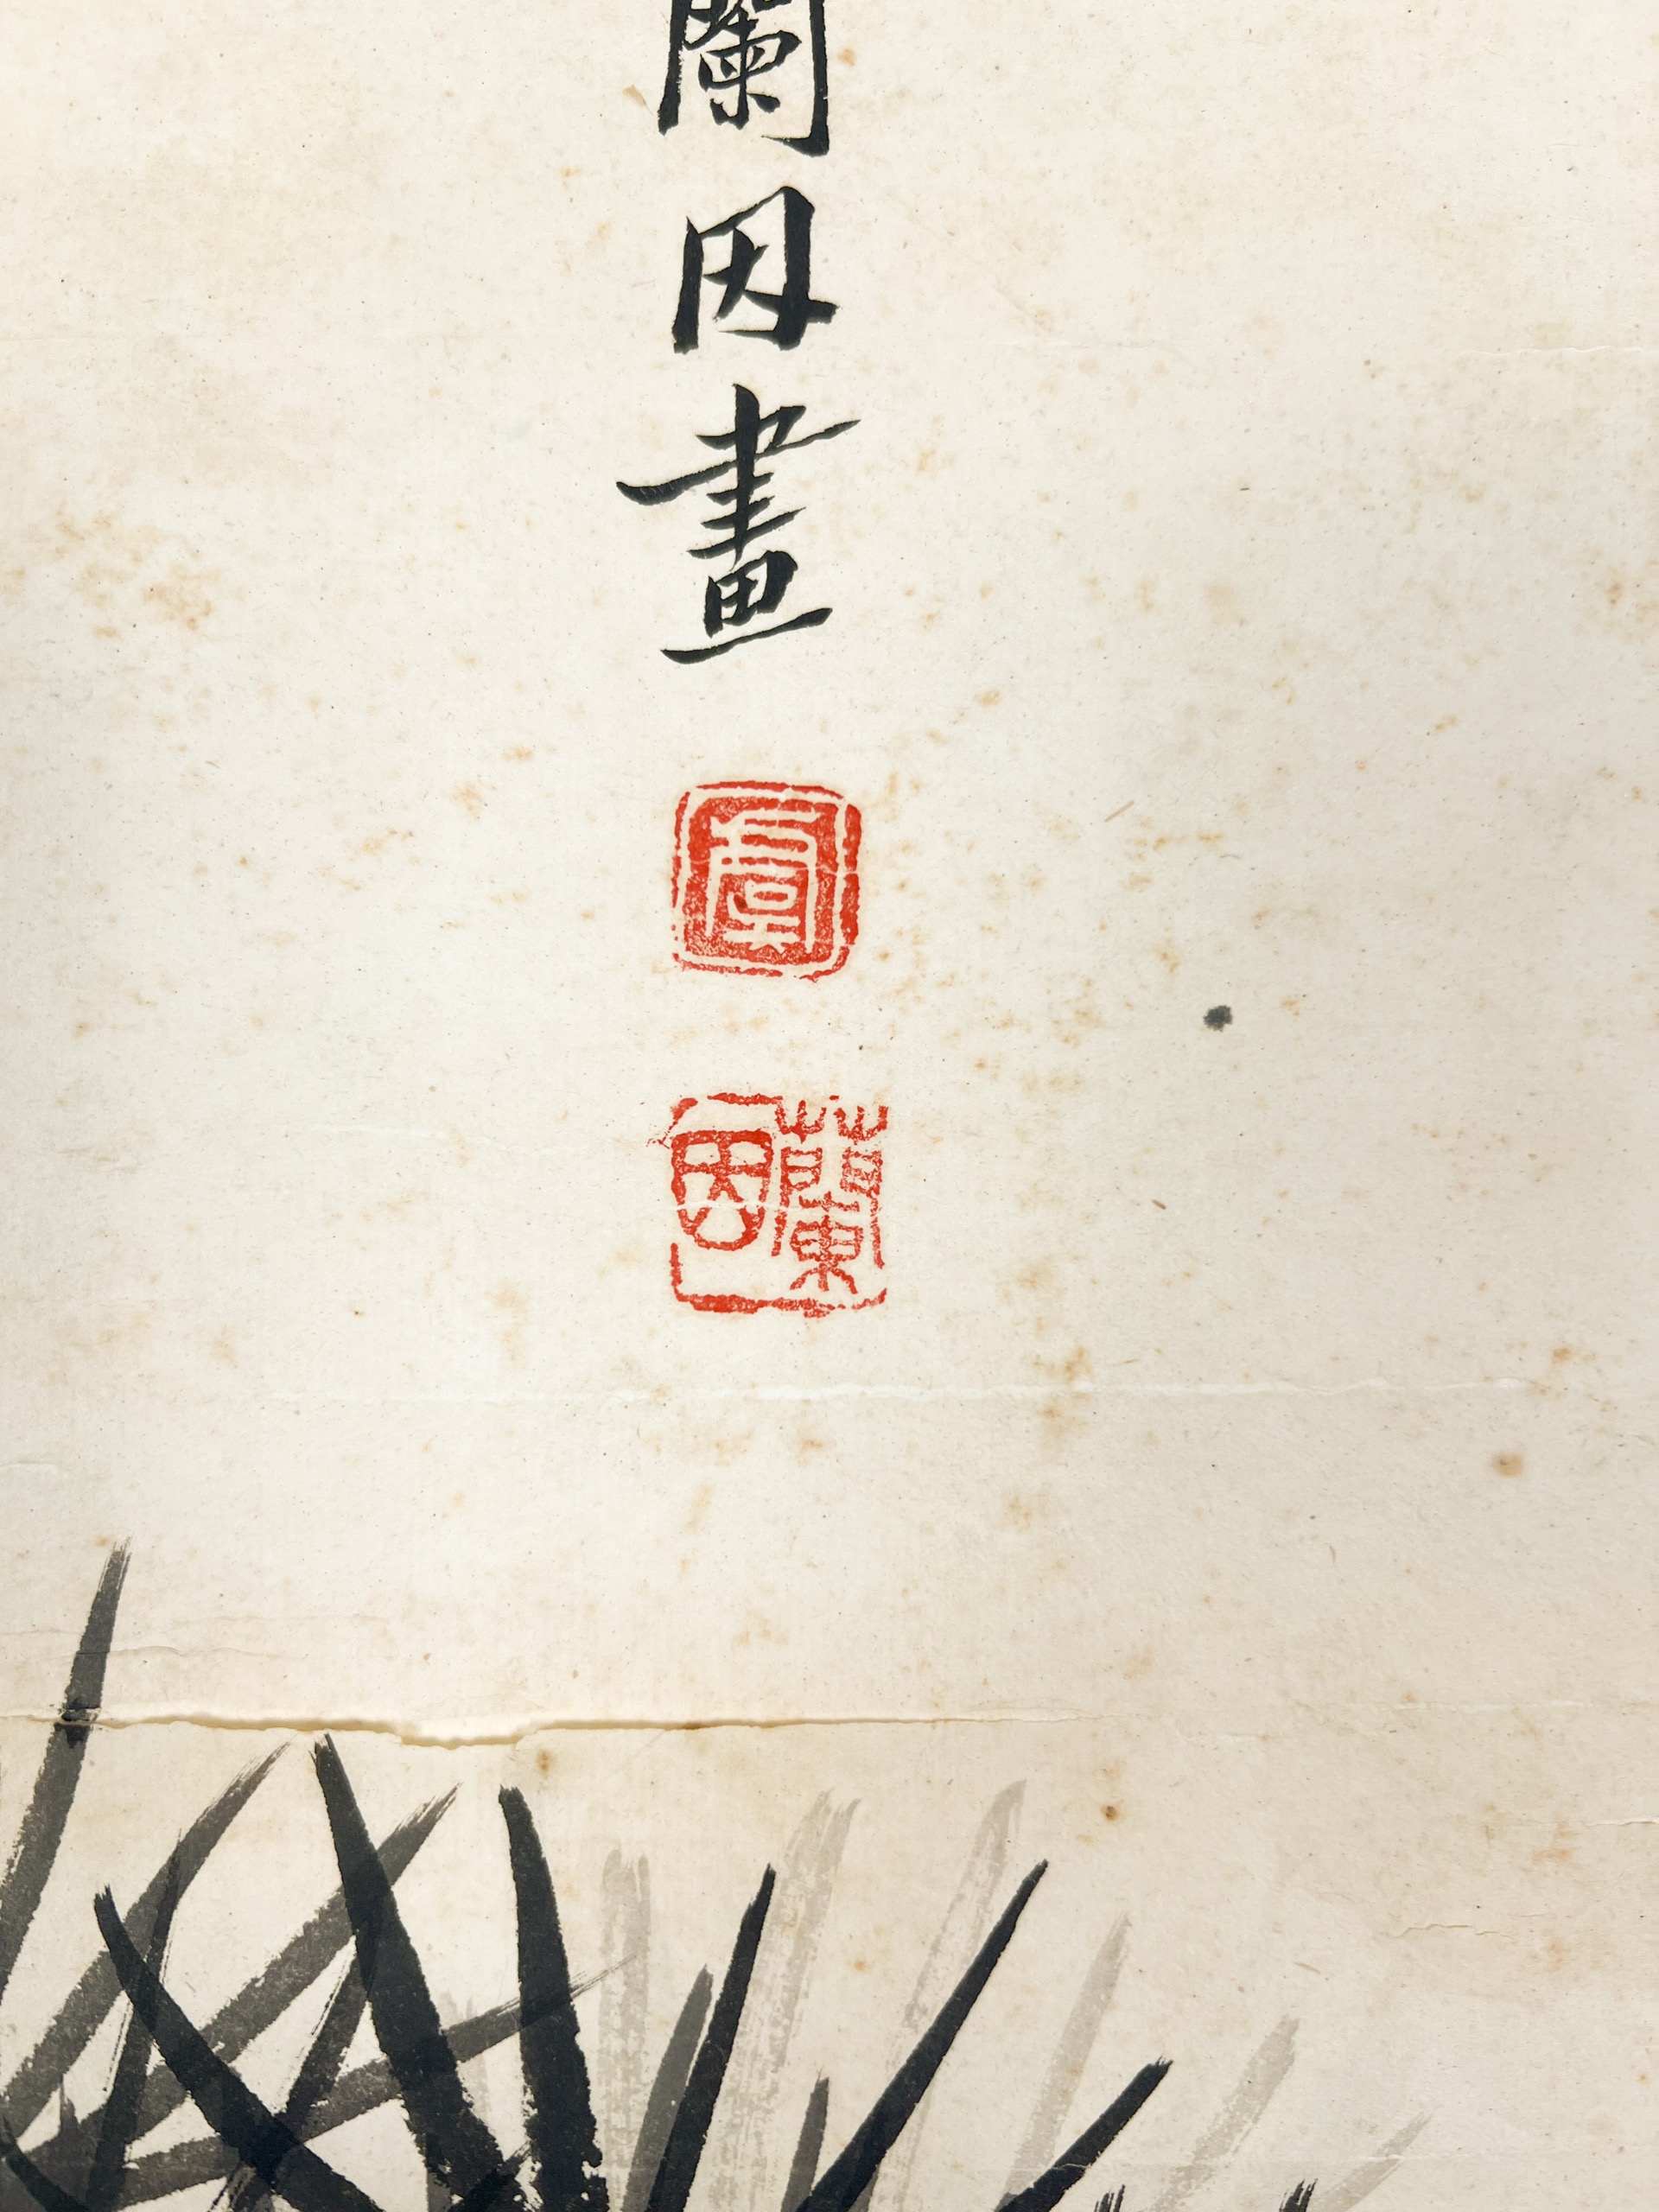 蘭因畫
蘭因